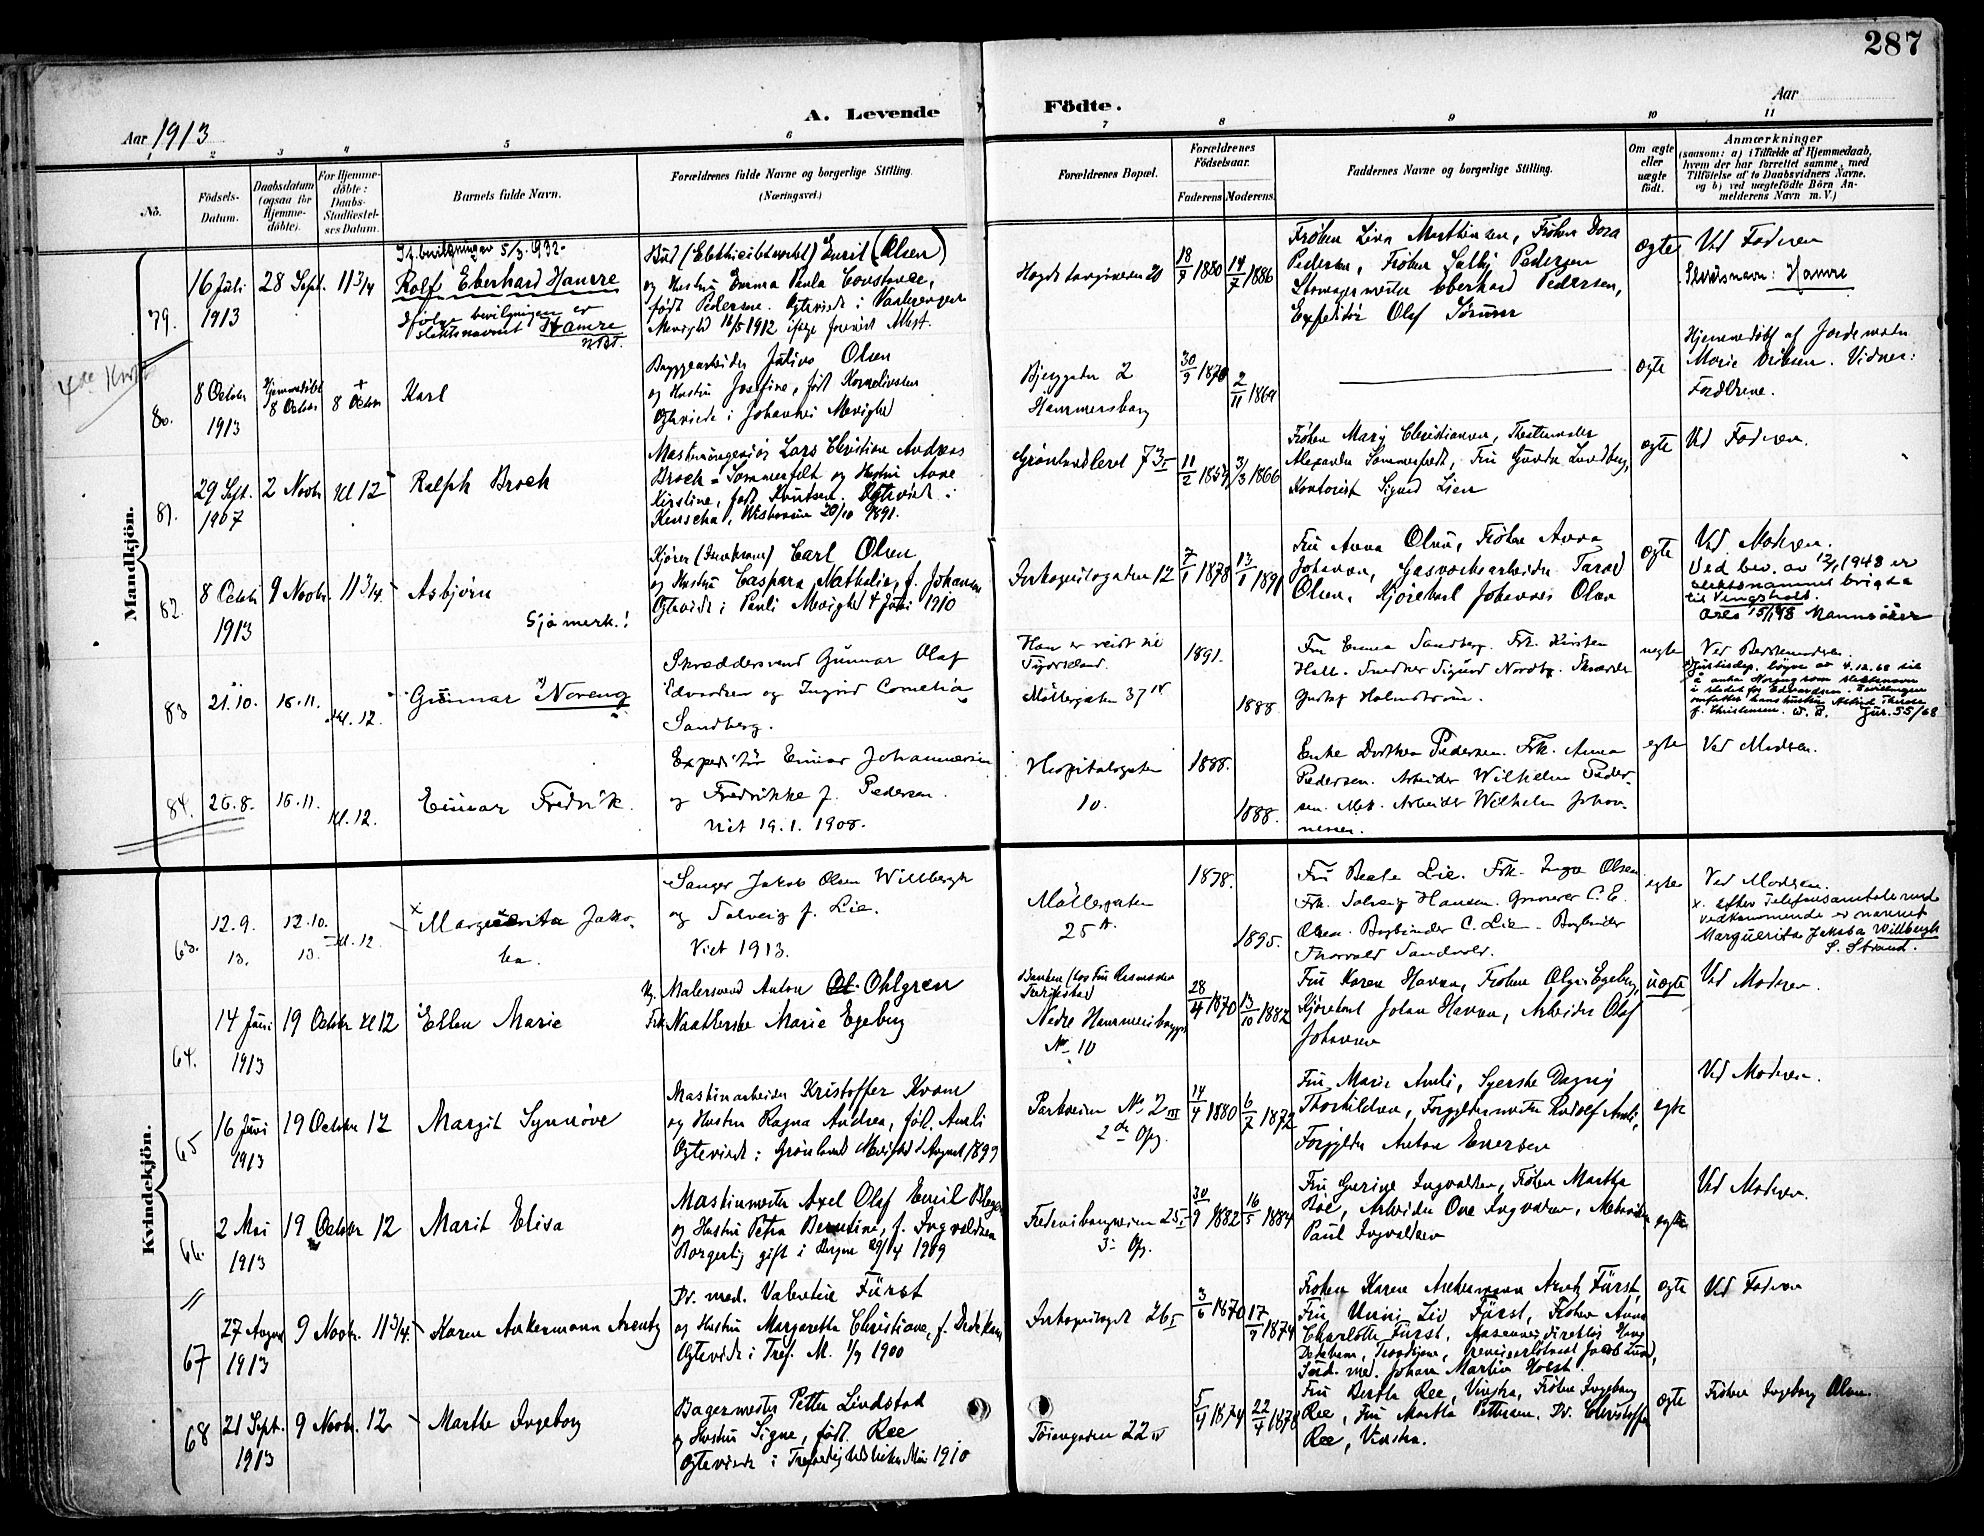 287
A. Levende Födte.
Aar 1913
Aar
1 2 3 4 5 6 7 8 9 10 11
No.
Födsels-Datum.
Daabsdatum (ogsaa for Hjemme-döbte).
For Hjemme-döbte: Daabs-Stadfæstel-ses Datum.
Barnets fulde Navn.
Forældrenes fulde Navne og borgerlige Stilling. (Næringsvei.)
Forældrenes Bopæl.
Forældrenes Födselsaar.
Faderens.
Moderens.
Faddernes Navne og borgerlige Stilling.
Om ægte eller uægte födt.
Anmærkninger
(saasom: a) i Tilfælde af Hjemmedaab, hvem der har forrettet samme, med Tilföielse af to Daabsvidners Navne, og b) ved uægtefödte Börn Anmelderens Navn m. V.)
Mandkjön.
79.
16 Juli 1913
28 Sept.
11 3/4
bevilgninger 5/3 1932
Rolf Eberhard Hamre
Ifølge bevilgningen er slektsnavnet Hamre
Bud (Elektricitetsverket) Emil (Olsen)
og Hustru Emma Paula Constance,
født Pedersen. Ægteviede i Vaalerengen
Menighed 16/5 1912
18/9 1880
14/7 1886
Frøken Lina Martinsen, Frøken Dora
Pedersen, Frøken Sally Pedersen
Eberhard Pedersen,
Expeditør Olaf
ægte
Ved Faderen
Slegtsnavn: Hamre
80.
8 October 1913
Hjemmedøbt 8 October
+ 8 October
Karl
Byggearbeider Julius Olsen
og Hustru Josefine, født Korneliussen
Ægteviede i Johannes Menighed
Bjerggaten 2
Hammersborg
30/9 1870
2/11 1869
ægte
Hjemmedøbt af Jordemoder
Marie Eriksen. Vidner:
Forældrene.
81.
29 Sept. 1907
2 Novbr
kl 12
Ralph Broch
Maskiningeniør Lars Christian Andreas
Broch-Sommerfelt og Hustru Anne
Kirstine, født Knutsen. Ægteviede i
Kenosha, Wisconsin 20/10 1891.
Grønlandsleret 73 I
11/2 1857
3/3 1866
Frøken Mary Christiansen, Theatermaler
Alexander Sommerfeldt, Fru Gjurda Lundberg,
Kontorist Sigurd Lien
ægte
Ved Faderen.
82.
8 Octbr 1913
9 Novbr.
11 3/4
Asbjørn
Sjå merk.!
Kjører Carl Olsen
og Hustru Caspara Nathalia, f. Johansen
Ægteviede i Pauli Menighed 4 Juni 1910
Jerkopingsgaten 12
7/1 1878
13/1 1891
Fru Anna Olsen, Frøken Anna
Johansen, Gasverksarbeider Tarald
Olsen, Kjørekarl Johannes Olsen
ægte
Ved Moderen.
Ved bev. av 12/1 1948 er
slektsnamnet brigda
til Vingsholt.
Oslo 15/1 48
83
21.10.
16.11.
kl. 12.
Gunnar Noreng
Skræddersvend Gunnar Olaf
Edvardsen og Ingrid Cornelia
Sandberg.
Han er reist til
Møllergaten 37 IV
1891.
1888.
Fru Emma Sandberg. Frk. Kirsten
Hall. Snedker Sigurd Nordby. Skrædder
Gustaf Holmstrøm.
uegte
Ved Bestemoderen.
Justisdep. løyve av 4.12.68 til
å anta Noreng som slektsnavn
i stedet for Edvardsen.
Jnr. 55/68
84.
26.8.
16.11.
kl. 12.
Einar Fredrik.
Expeditør Einar Johannessen
og Fredrikke f. Pedersen.
Viet 19.1.1908.
Hospitalsgaten
10.
1888.
1888.
Enke Dorthea Pedersen. Frk. Anna
Pedersen. Arbeider Wilhelm Peder-
sen. Mek. Arbeider Wilhelm Johan-
nessen.
egte
Ved Moderen.
Kvindekjön.
63.
12.9. 13.
12.10. 13.
kl. 12.
x Marguerita Jako-
ba.
Sanger Jakob Olsen Willbergh
og Solveig f. Lie.
Viet 1913.
Møllergaten
25 A.
1878.
1895.
Fru Beate Lie. Frk. Inga Olsen
Frk. Solveig Hansen. Graverer C. E.
Olsen. Bogbinder C. Lie. Bogbinder
Thorvald Sandvold.
egte
Ved Moderen.
x. efter Telefonsamtale med
vedkommende er navnet
Marguerita Jakoba Willbergh
S. Strand.
64.
14 Juni 1913
19 October
kl 12
Ellen Marie
Ug. Malersvend Anton Ohlgren
Frk. Naatlerske Marie Egeberg
Nedre Hammersborggt
No 10
28/4 1870
13/10 1882
Fru Karen Hansen, Frøken Olga Egeberg,
Kjørekarl Johan Hansen, Arbeider Olaf
Johansen
uægte
Ved Moderen
65
16 Juni 1913
19 October
12
Margit Synnøve
Maskinarbeider Kristoffer Kvam
og Hustru Ragna Andrea, født Amli
Ægteviede i Grønland Menighed August 1899
Parkveien No 2 III
2den Opg.
14/4 1880
6/7 1872
Fru Marie Amli, Syerske Dagny
Thorkildsen, Forgyldermester Rudolf Amli,
Forgylder Anton Evensen
egte
Ved Moderen.
66.
2 Mai 1913
19 October
12
Marit Elisa
Maskinmester Axel Olaf Emil
og Hustru Petra Berntine, f. Ingvaldsen
Borgerlig gift i Bergen 29/4 1909
Fredensborgveien 25 I
3. Opg.
30/9 1882
16/5 1884
Fru Gurine Ingvaldsen, Frøken Martha
Bøe, Arbeider Ove Ingvaldsen,
Paul Ingvaldsen
egte
Ved Moderen.
67
27 August 1913
9 Novbr.
11 3/4.
Karen Ankermann Arentz
Dr. med. Valentin Fürst
og Hustru Margarethe Christiane, f. Dedekam
Ægteviede i Tref. M. 1/9 1900
26 I
3/6 1870
17/9 1874
Frøken Karen Ankermann Arentz Fürst,
Fru Unni Liv Fürst, Frøken Anna
Charlotte Fürst,
Dedekam, premierløitnant Jacob Lund,
Stud. med. Johan Martin Holst.
ægte
Ved Faderen
68
21 Sept. 1913
9 Novbr.
12
Marthe Ingeborg
Bagermester Petter Lindstad
og Hustru Signe, født Ree
Ægteviede i Trefoldighedskirken Mai 1910
Tøiengaden 22 IV
5/4 1874
22/4 1878
Fru Bertha Ree, Vinstra, Frøken Ingeborg
Ree, Fru Martha Pettersen, Dr. Christoffer
Ree, Vinstra.
ægte
Frøken Ingeborg Olsen.